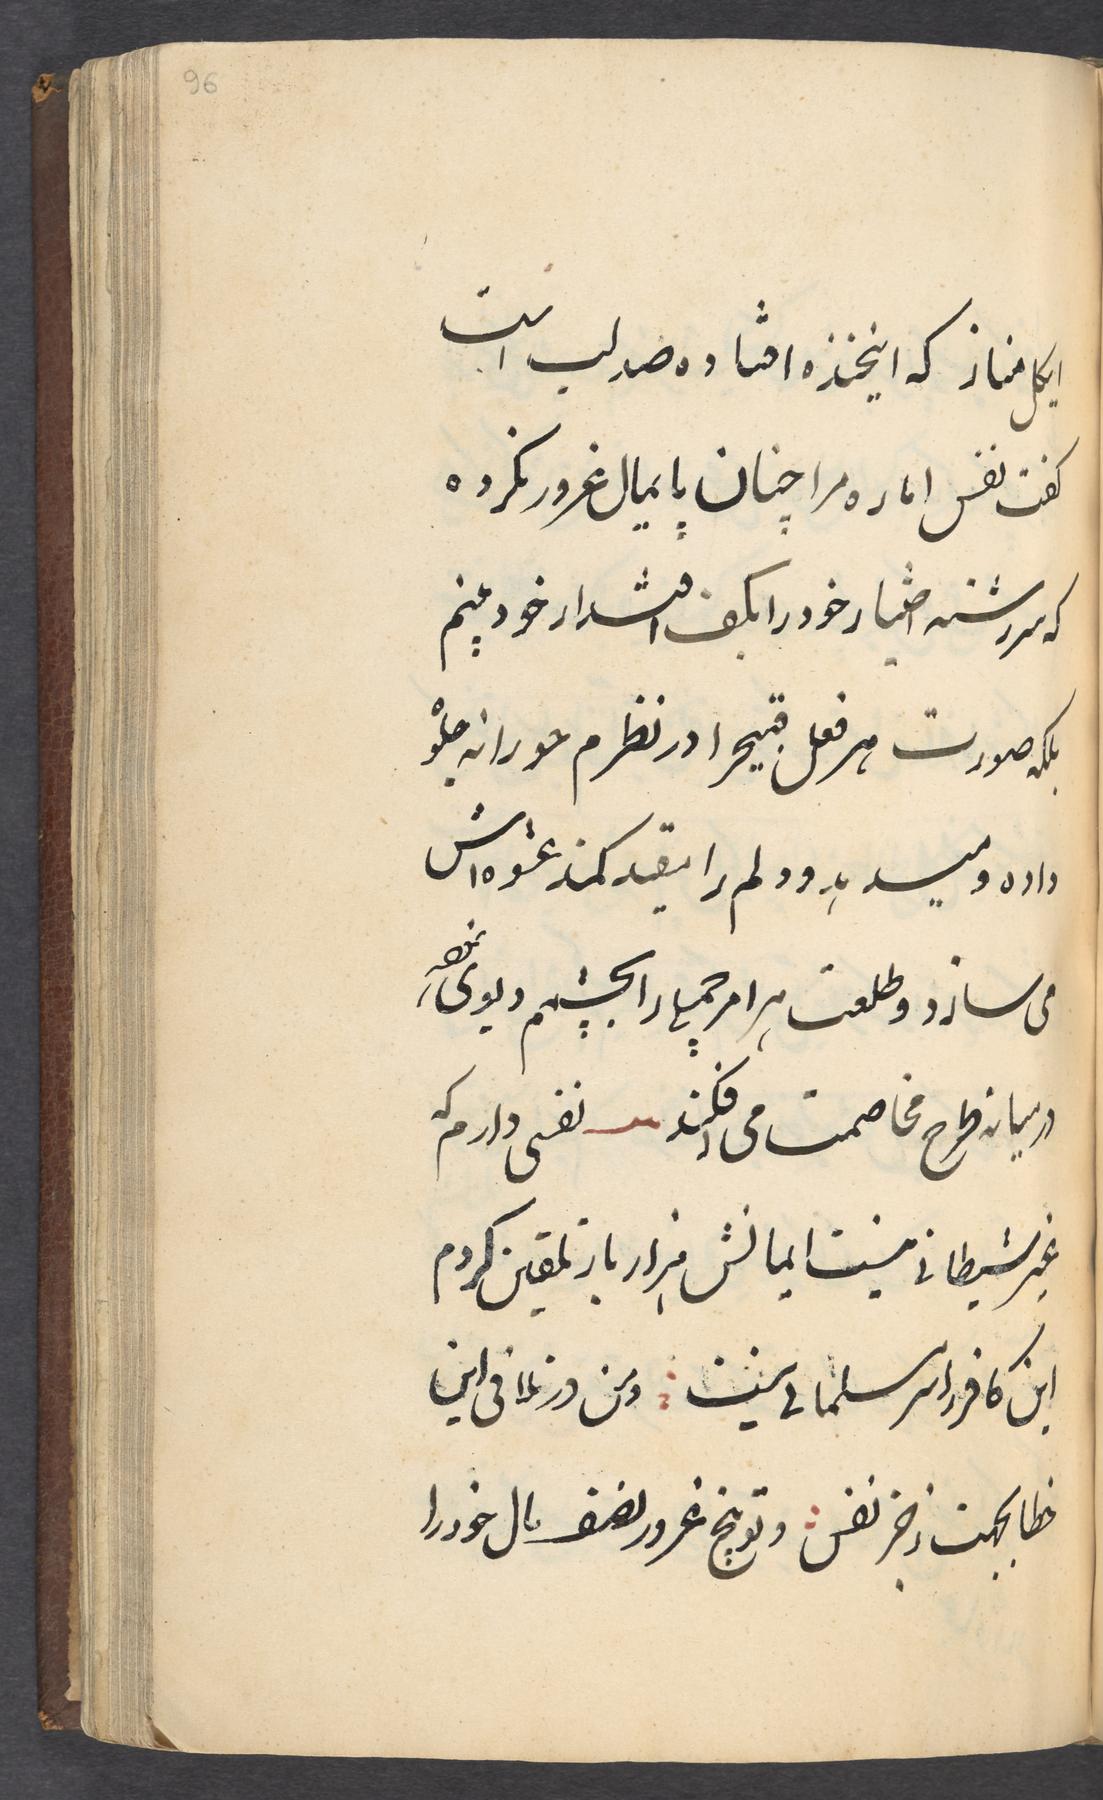 96
ایکل مناز که اینخنده افتاده صد لب است
کفت نفس اماره مرا چنان پایمال غرور نکرده
که سررشته اختیار خود را بکف اقتدار خود بینم
بلکه صورت هر فعل قبیح را در نظرم حورانه جلوه
داده و میدهد و دلم را مقید کمند عشوه‌اش
می‌سازد و طلعت هر امر جمیله را بچشم دیوی نموده
در میانه طرح مخاصمت می‌افکند نفسی دارم که
غیر شیطانی نیست ایمانش هزار بار تلقین کردم
این کافر را سر مسلمانی نیست ومن در تلافی این
خطا بجهت زجر نفس وتوبیخ غرور نصف مال خود را